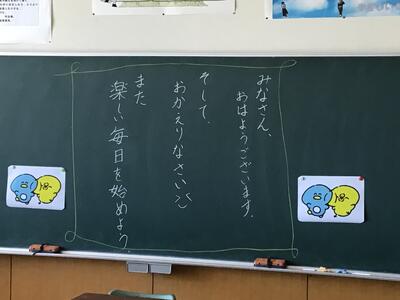 みなさん、
おはようございます。
そして、
おかえりなさい
また
楽しい毎日を始めよう